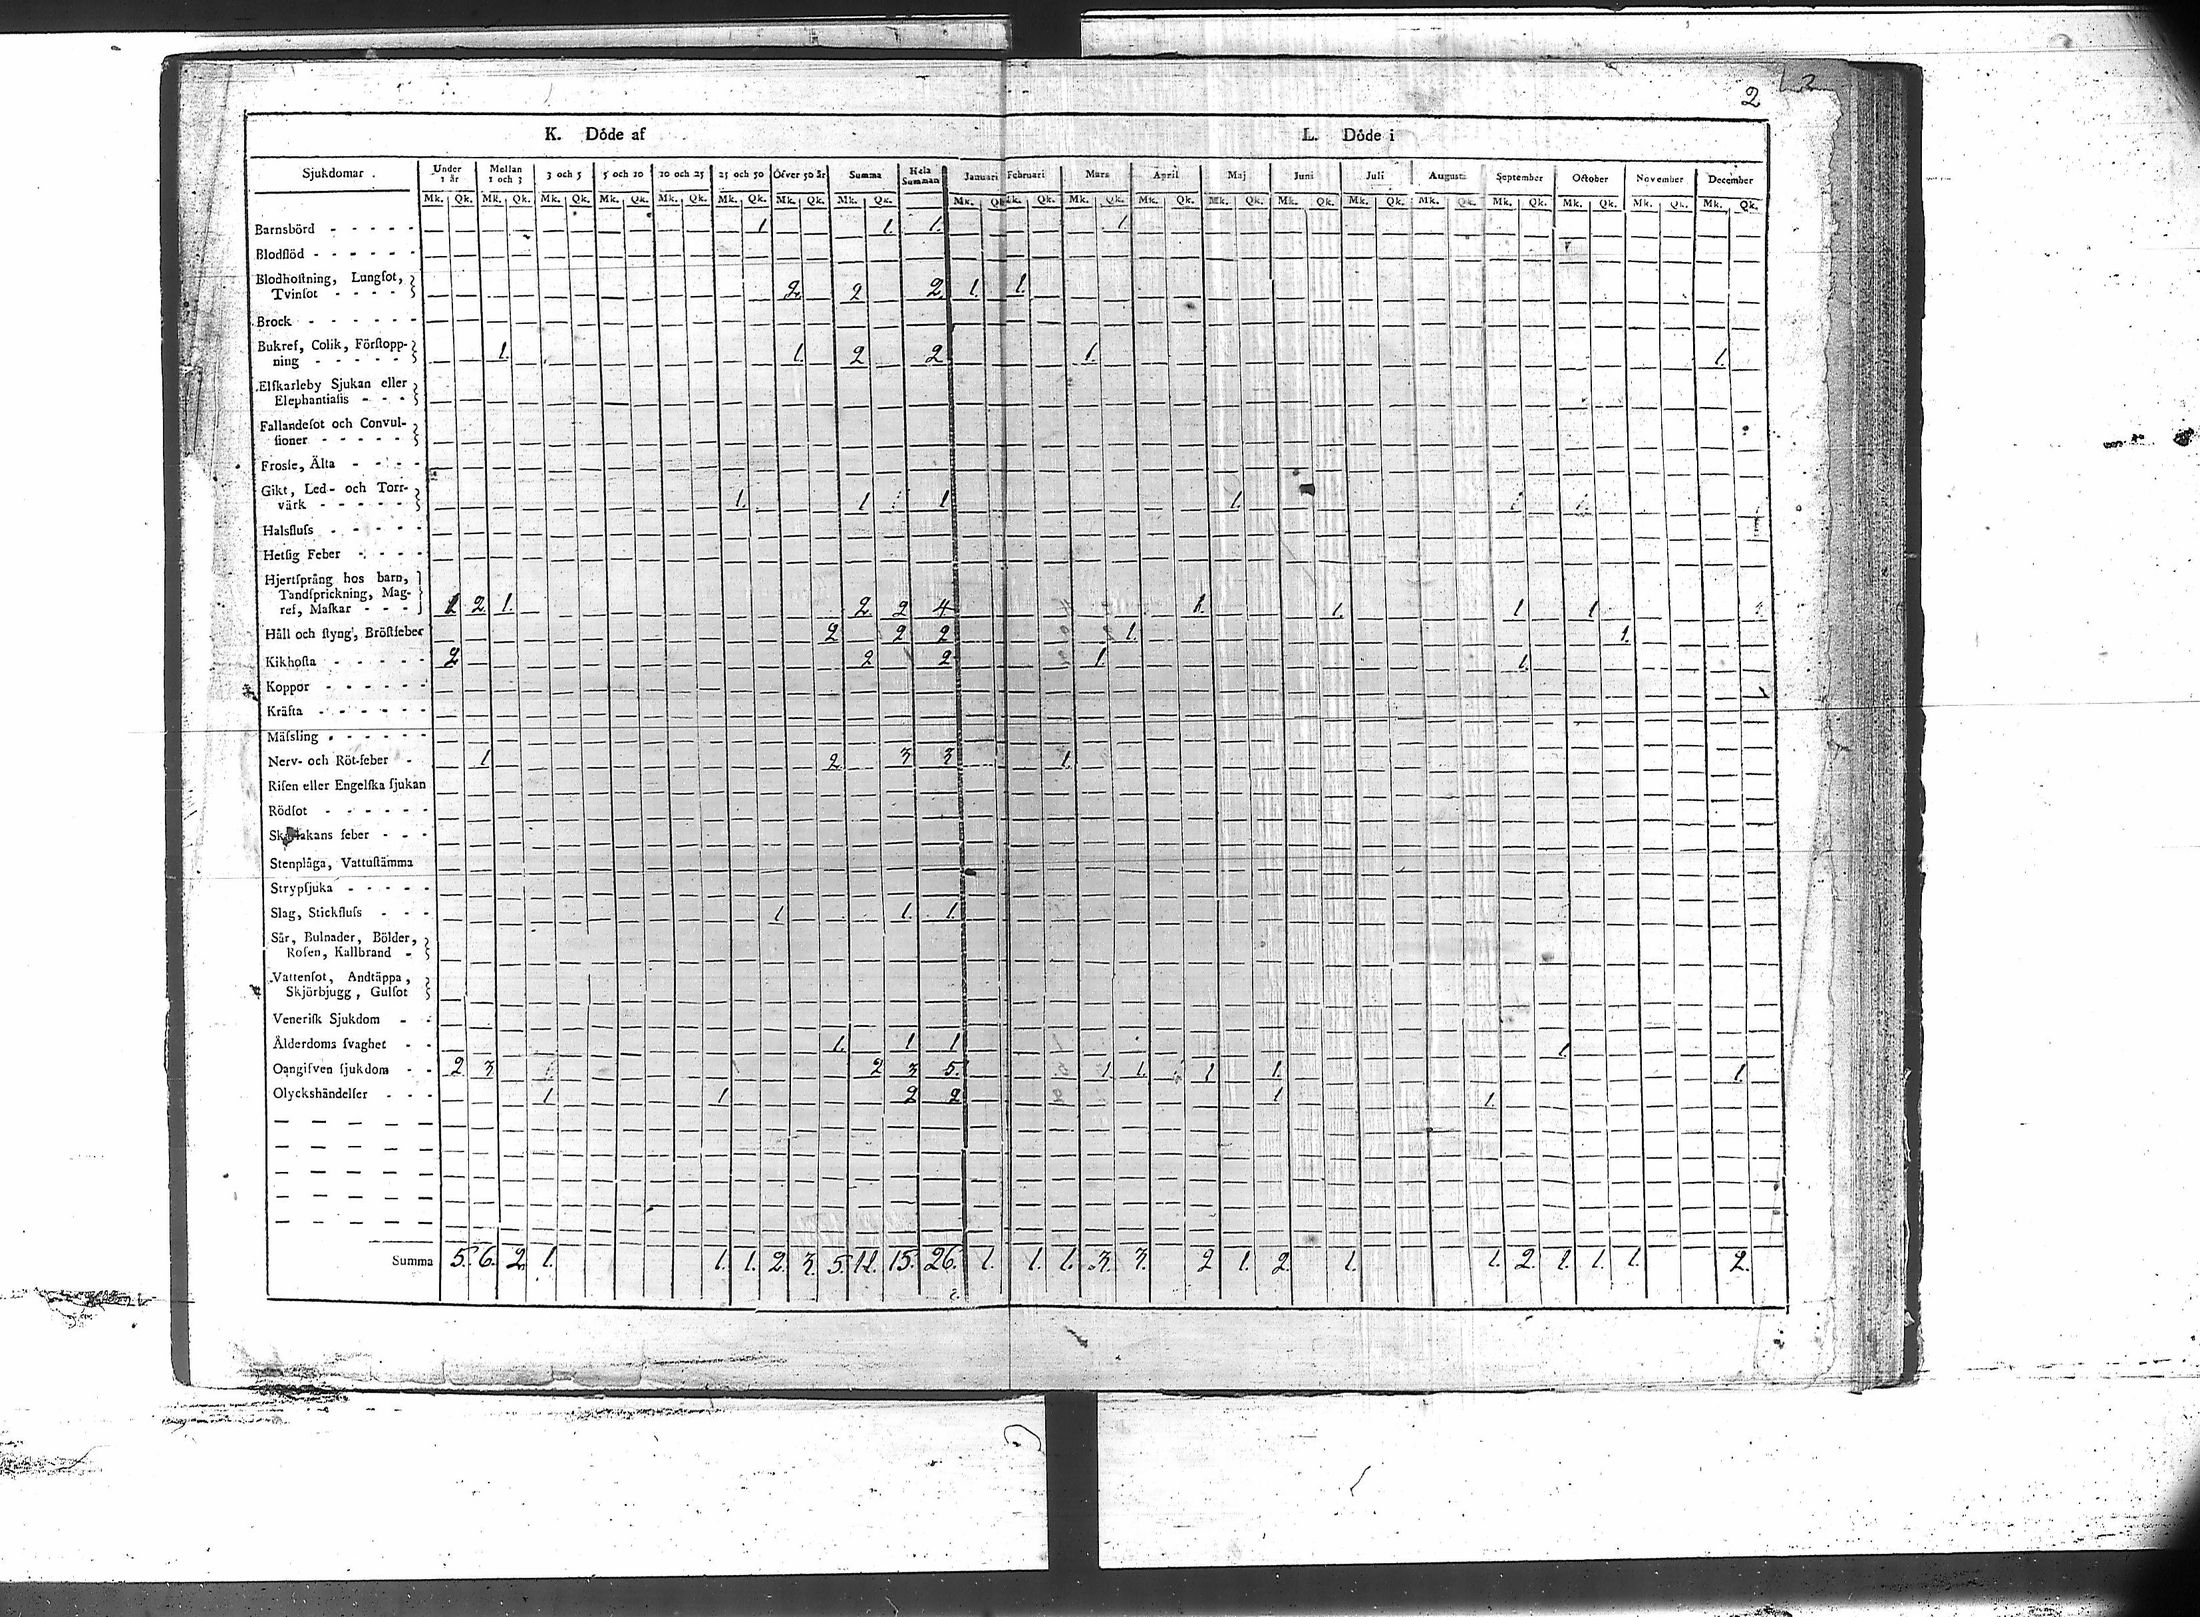 2
K. Döde af L. Döde i
Sjukdomar. Under 1 år Mellan 1 och 3 3 och 5 5 och 10 10 och 25 25 och 50 Öfver 50 år Summa Hela Summan Januari Februari Mars April Maj Juni Juli Augusti September October November December
Mk. Qk. Mk. Qk. Mk. Qk. Mk. Qk. Mk. Qk. Mk. Qk. Mk. Qk. Mk. Qk. Mk. Qk. Mk. Qk. Mk. Qk. Mk. Qk. Mk. Qk. Mk. Qk. Mk. Qk. Mk. Qk. Mk. Qk. Mk. Qk. Mk. Qk. Mk. Qk.
Barnsbörd - - - - - 1 1. 1. 1.
Blodflöd - - - - - -
Blodhoſtning, Lungſot,
Tvinſot - - - - 2 2 2 1. 1.
Brock - - - - - -
Bukref, Colik, Förſtopp-
ning - - - - - 1. 1. 2 2 1. 1.
Elſkarleby Sjukan eller
Elephantiaſis - - -
Fallandeſot och Convul-
ſioner - - - - -
Froſſe, Älta - - - -
Gikt, Led- och Torr-
värk - - - - - 1. 1 1 1.
Halsfluſs - - - - -
Hetſig Feber - - - -
Hjertſprång hos barn,
Tandſprickning, Mag-
ref, Maſkar - - - 2 1. 2. 2 4 1. 1. 1 1.
Håll och ſtyng, Bröſtfeber 2 2 2 1. 1.
Kikhoſta - - - - - 2 2 2 1 1.
Koppor - - - - - -
Kräfta - - - - - -
Mäſsling - - - - - -
Nerv- och Röt-feber - 1 2 3 3 1.
Riſen eller Engelſka ſjukan
Rödſot - - - - - -
Skarlakans feber - - -
Stenplåga, Vattuſtämma
Strypſjuka - - - - -
Slag, Stickfluſs - - - 1 1. 1.
Sår, Bulnader, Bölder,
Roſen, Kallbrand -
Vattenſot, Andtäppa,
Skjörbjugg, Gulſot
Veneriſk Sjukdom - -
Ålderdoms ſvaghet - - 1. 1 1 1.
Oangifven ſjukdom - - 2 3 2 3 5. 1 1. 1 1. 1.
Olyckshändelſer - - - 1 1 2 2 1 1.
Summa 5. 6. 2 1. 1. 1. 2. 3. 5. 11. 15. 26. 1. 1. 1. 3. 3. 2 1. 2. 1. 1. 2. 1. 1. 1. 2.